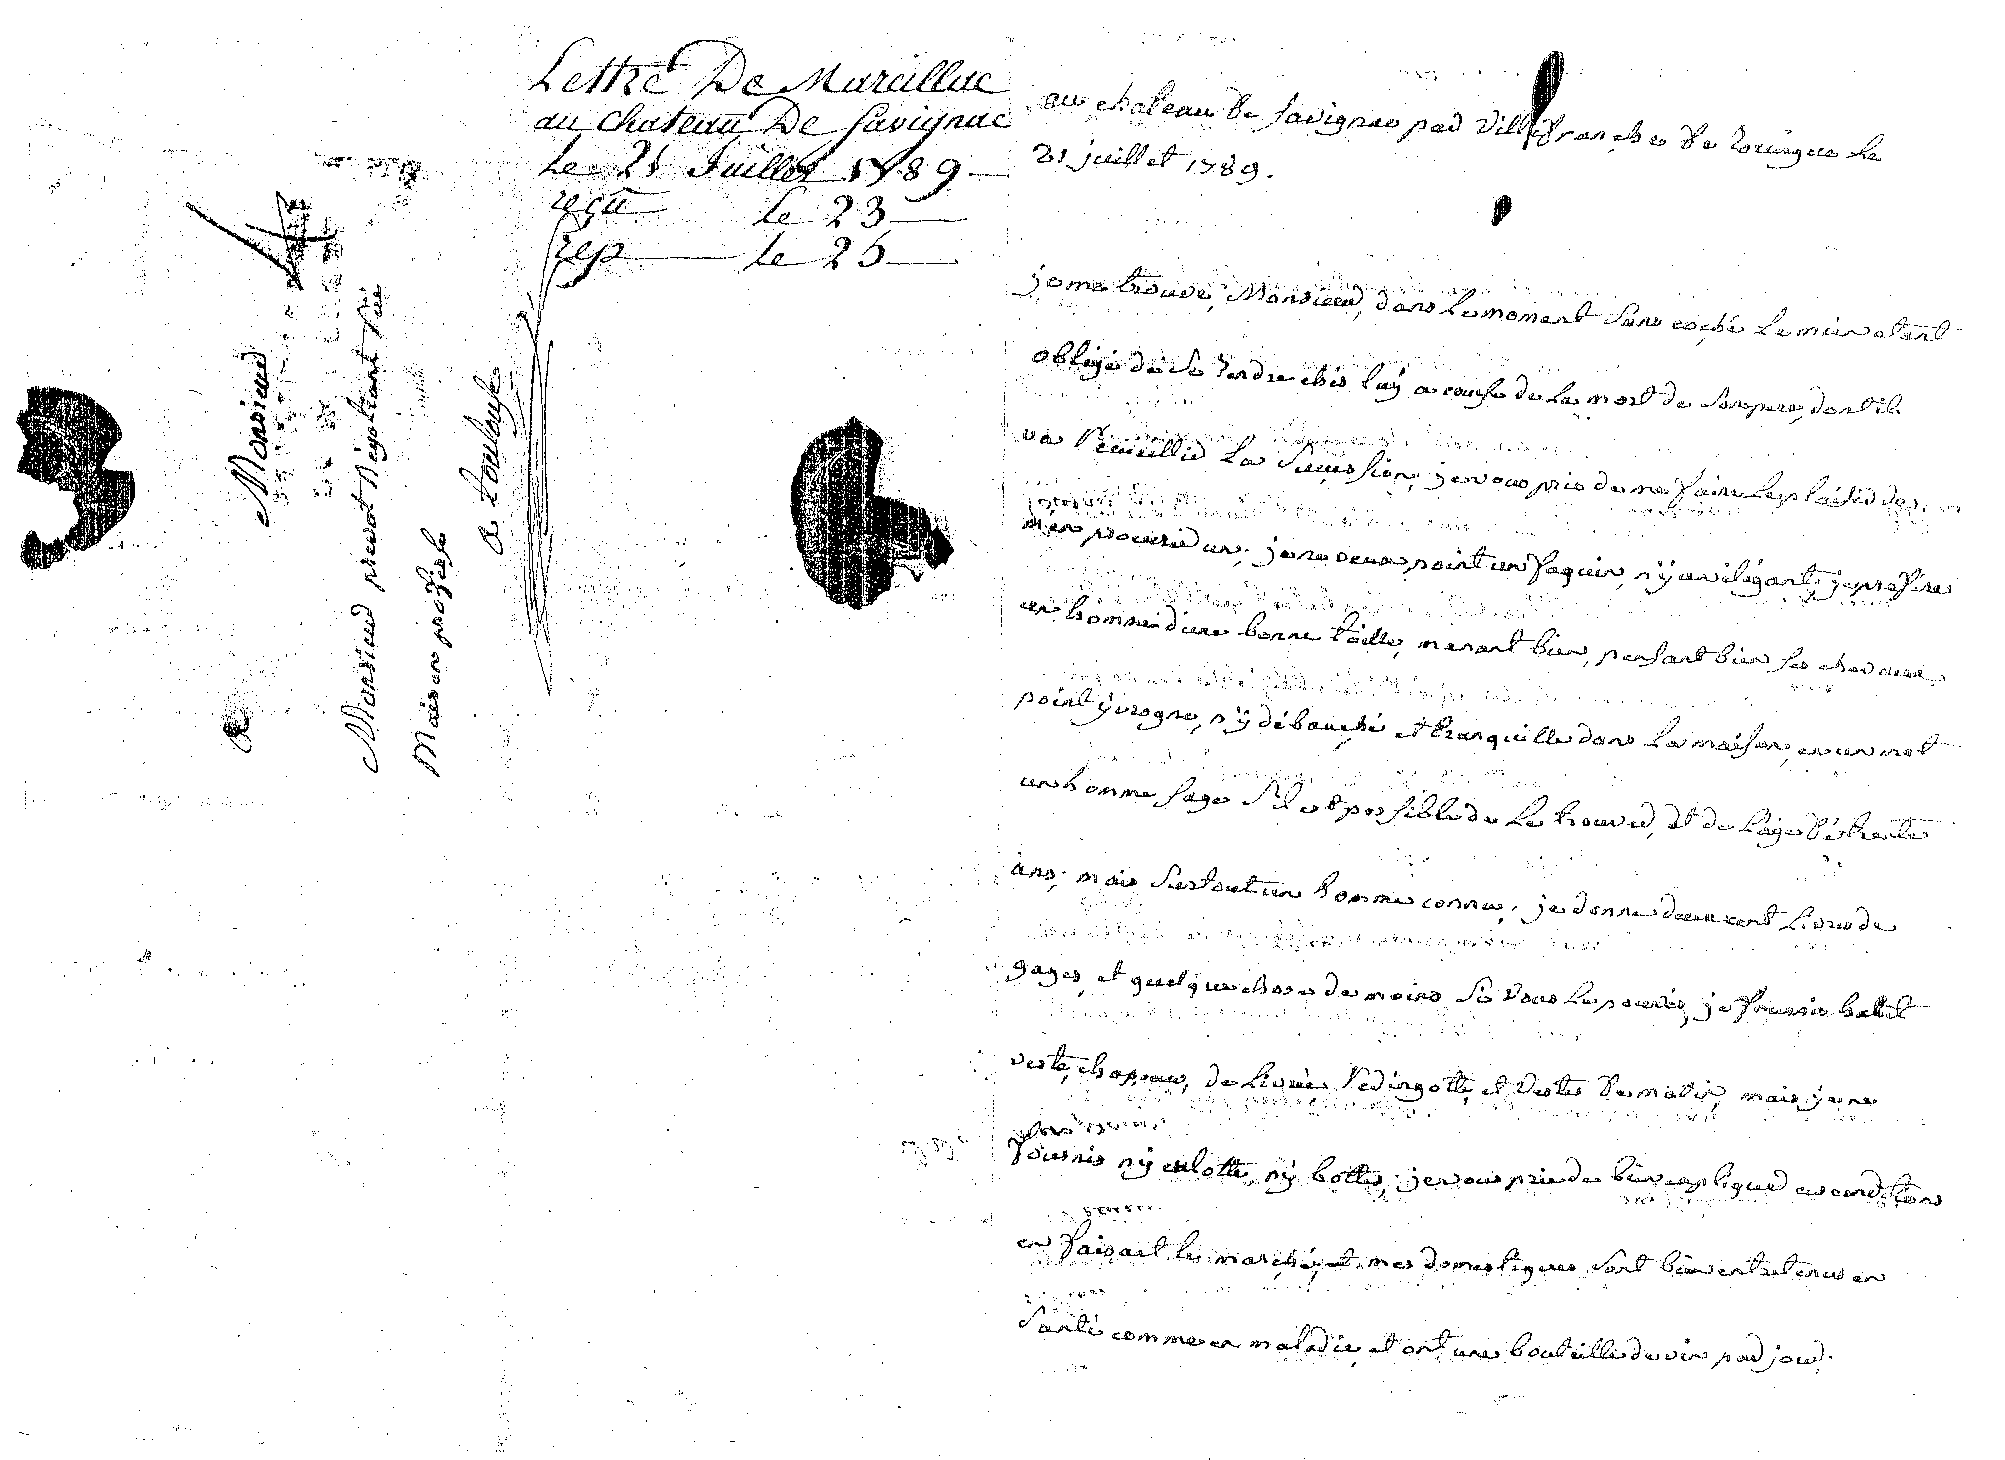 Lettre De Marcillac
au chateau De Savignac
Le 21 Juillet 1789
reçu le 23
rep le 25
Monsieur
Monsieur pierot Négotiant Rüe
Maison professe
a toulouse
au chateau de Savignac par villefranche de rouergue le
21 juillet 1789.
je me trouve, Monsieur, dans le moment sans coché le mien etant
obligé de se rendre chés luy a cause de la mort de son pere, dont il
va recueillir la succession, je vous prie de me faire le plaisir de
m'en procurer un, je ne veux point un faquin, n'y un élégant, je prefere
un homme d'une bonne taille, menant bien, pensant bien ses chevaux
point yvrogne, n'y débauché et tranquille dans la maison, en un mot
un homme sage s'il est possible de le trouver, et de l'age de trente
ans, mais surtout un homme connu, je donne deux cent livres de
gages, et quelque chose de moins si vous le pouvés, je fournis habit
veste, chapeau, de livrée, redingotte, et veste du matin, mais je ne
fournis n'y culotte, n'y bottes, je vous prie de bien expliquer ces conditions
en faisant le marché, et mes domestiques sont bien entretenus en
santé comme en maladie, et ont une bouteille de vin par jour.